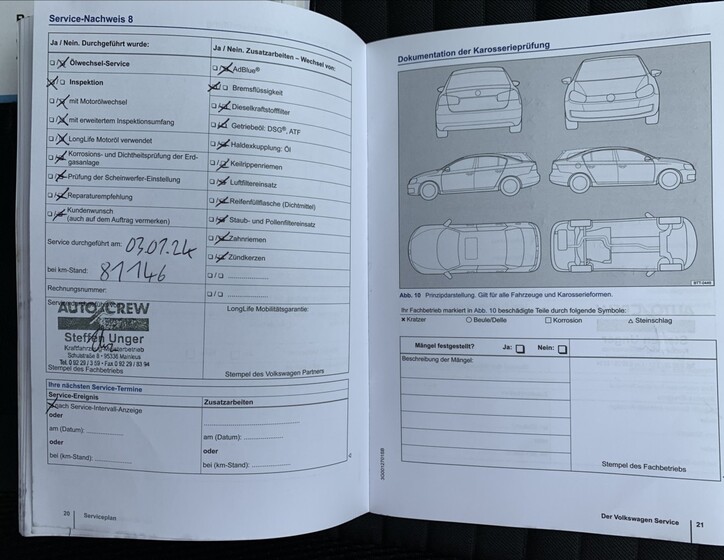 Service-Nachweis 8
Ja / Nein. Durchgeführt wurde:
Ölwechsel-Service
Inspektion
mit Motorölwechsel
mit erweitertem Inspektionsumfang
LongLife Motoröl verwendet
Korrosions- und Dichtheitsprüfung der Erd-
gasanlage
Prüfung der Scheinwerfer-Einstellung
Reparaturempfehlung
Kundenwunsch
(auch auf dem Auftrag vermerken)
Service durchgeführt am: 03.01.24
bei km-Stand: 81146
Rechnungsnummer:
AUTO CREW
Steffen Unger
Schulstraße 8 · 95336 Mainleus
Tel. 0 92 29 / 3 59 · Fax 0 92 29 / 83 94
Stempel des Fachbetriebs
Ja / Nein. Zusatzarbeiten – Wechsel von:
AdBlue®
Bremsflüssigkeit
Dieselkraftstofffilter
Getriebeöl: DSG®, ATF
Haldexkupplung: Öl
Keilrippenriemen
Luftfiltereinsatz
Reifenfüllflasche (Dichtmittel)
Staub- und Pollenfiltereinsatz
Zahnriemen
Zündkerzen
LongLife Mobilitätsgarantie:
Stempel des Volkswagen Partners
Ihre nächsten Service-Termine
Service-Ereignis
nach Service-Intervall-Anzeige
oder
am (Datum):
oder
bei (km-Stand):
Zusatzarbeiten
am (Datum):
oder
bei (km-Stand):
20 Serviceplan
Dokumentation der Karosserieprüfung
Abb. 10 Prinzipdarstellung. Gilt für alle Fahrzeuge und Karosserieformen.
Ihr Fachbetrieb markiert in Abb. 10 beschädigte Teile durch folgende Symbole:
x Kratzer ○ Beule/Delle □ Korrosion △ Steinschlag
Mängel festgestellt? Ja: Nein:
Beschreibung der Mängel:
Stempel des Fachbetriebs
Der Volkswagen Service 21